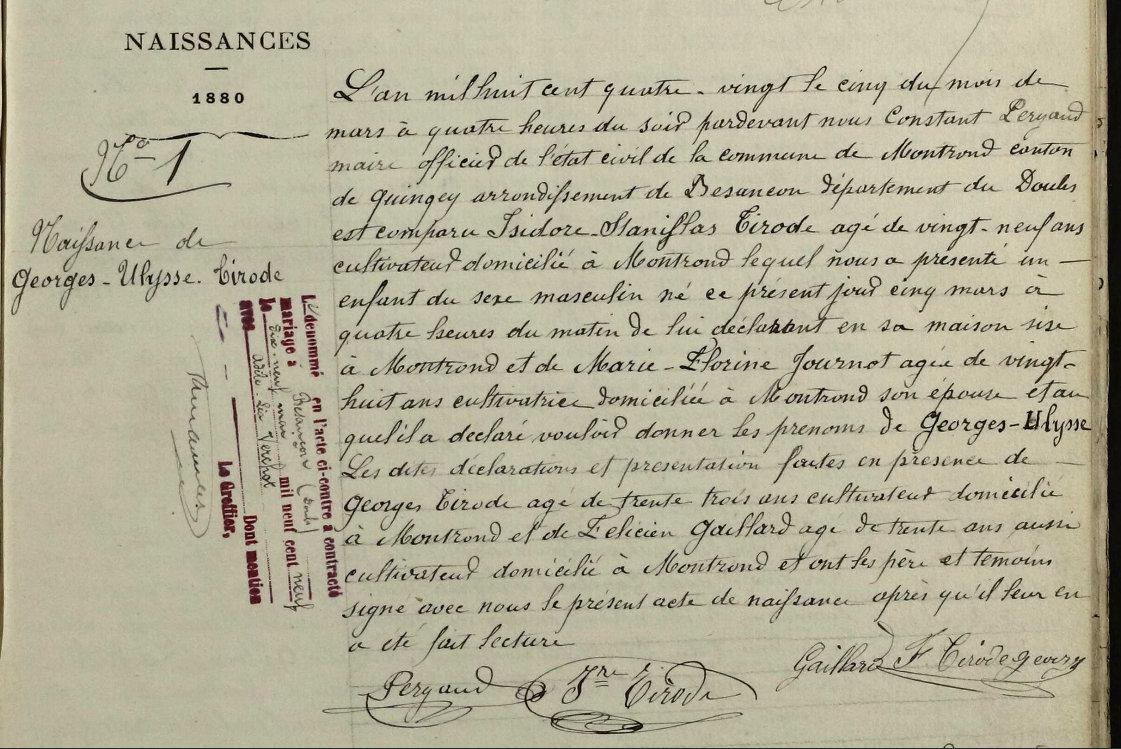 NAISSANCES
1880
No 1
Naissance de
Georges-Ulysse. Tirode
L'an mil huit cent quatre-vingt le cinq du mois de
mars à quatre heures du soir pardevant nous Constant Pergaud
maire officier de l'état civil de la commune de Montrond canton
de quingey arrondissement de Besancon département du Doubs
est comparu Isidore-Stanislas Tirode agé de vingt-neuf ans
cultivateur domicilié à Montrond lequel nous a présenté un
enfant du sexe masculin né ce présent jour cinq mars à
quatre heures du matin de lui déclarant en sa maison sise
à Montrond et de Marie-Florine Journot agée de vingt-
huit ans cultivatrice domiciliée à Montrond son épouse et au
quel il a déclaré vouloir donner les prenoms de Georges-Ulysse
Les dites déclarations et presentation faites en presence de
Georges Tirode age de trente trois ans cultivateur domicilié
à Montrond et de Felicien Gaillard agé de trente ans aussi
cultivateur domicilié à Montrond et ont les père et temoins
signé avec nous le présent acte de naissance après qu'il leur en
a été fait lecture
Pergaud
Tirode
Gaillard F
Tirode georg
Le denommé en l'acte ci-contre a contracté
mariage à Besançon (Doubs)
le dix-neuf mai mil neuf cent neuf
avec Adèle Verchot
Dont mention
Le Greffier,